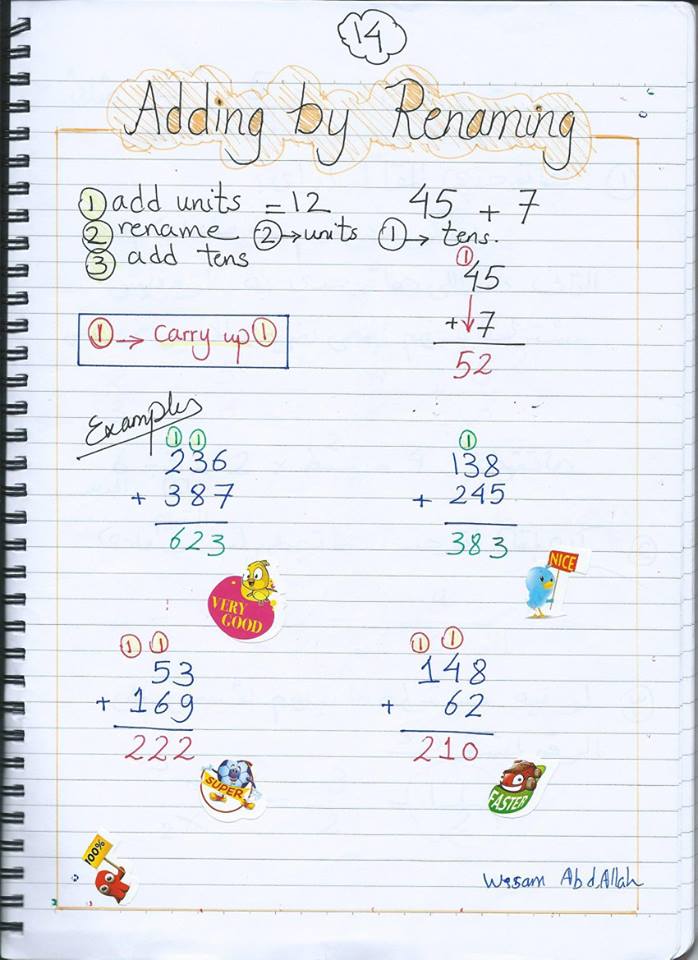 14
Adding by Renaming
① add units = 12 45 + 7
② rename ② → units ① → tens.
③ add tens
①
45
+ 7
52
① → Carry up ①
Examples
① ①
236
+ 387
623
①
138
+ 245
383
VERY GOOD
NICE
① ①
53
+ 169
222
① ①
148
+ 62
210
SUPER
FASTER
100%
Wesam Abd.Allah